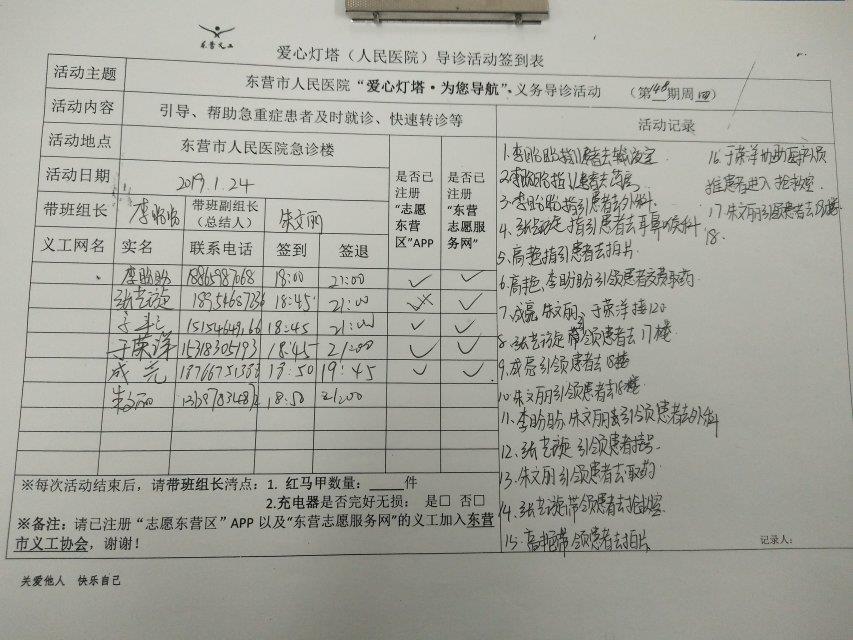 东营义工
爱心灯塔（人民医院）导诊活动签到表
活动主题 东营市人民医院“爱心灯塔·为您导航”·义务导诊活动 （第148期周四）
活动内容 引导、帮助急重症患者及时就诊、快速转诊等 活动记录
活动地点 东营市人民医院急诊楼 是否已注册“志愿东营区”APP 是否已注册“东营志愿服务网”
活动日期 2019.1.24
带班组长 李盼盼 带班副组长（总结人） 朱文丽
义工网名 实名 联系电话 签到 签退
李盼盼 18:00 21:00 ✓ ✓
张艺璇 18:45 21:00 ✓
18:45 21:00 ✓ ✓
于荣洋 15318305193 18:45 21:00 ✓ ✓
成亮 18:50 19:45 ✓ ✓
朱文丽 18:50 21:00
※每次活动结束后，请带班组长清点：1. 红马甲数量：_____件
2.充电器是否完好无损： 是□ 否□
※备注：请已注册“志愿东营区”APP 以及“东营志愿服务网”的义工加入东营
市义工协会，谢谢！
1.李盼盼指引患者去输液室
2.李盼盼指引患者去
3.李盼盼指引患者去外科
4.张艺璇指引患者去耳鼻喉科
5.高艳指引患者去拍片
6.高艳、李盼盼引领患者交费取药
7.成亮 朱文丽、于荣洋接120
8.张艺璇带领患者去17楼
9.成亮引领患者去18楼
10.朱文丽引领患者去18楼
11.李盼盼,朱文丽引领患者去外科
12.张艺璇引领患者挂号
13.朱文丽引领患者去取药
14.张艺璇带领患者去抢救室
15.高艳带领患者去拍片
16.于荣洋协助医护人员
推患者进入抢救室.
17.朱文丽引领患者去18楼
18.
记录人：
关爱他人 快乐自己